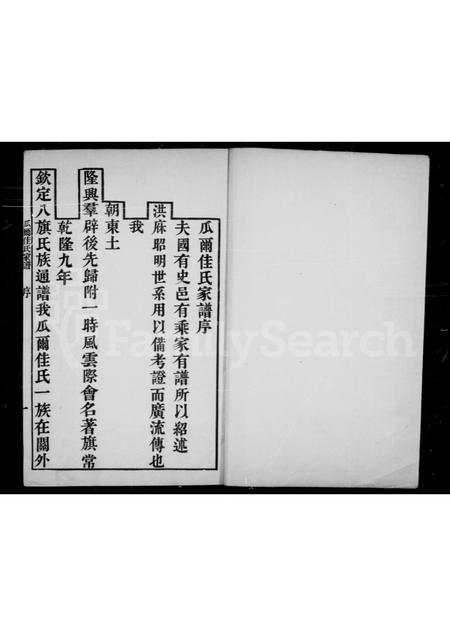 瓜爾佳氏家譜序
夫國有史邑有乘家有譜所以紹述
洪庥昭明世系用以備考證而廣流傳也
我
朝東土
隆興羣辟後先歸附一時風雲際會名著旗常
乾隆九年
欽定八旗氏族通譜我瓜爾佳氏一族在關外
瓜爾佳氏家譜 序 一
FamilySearch